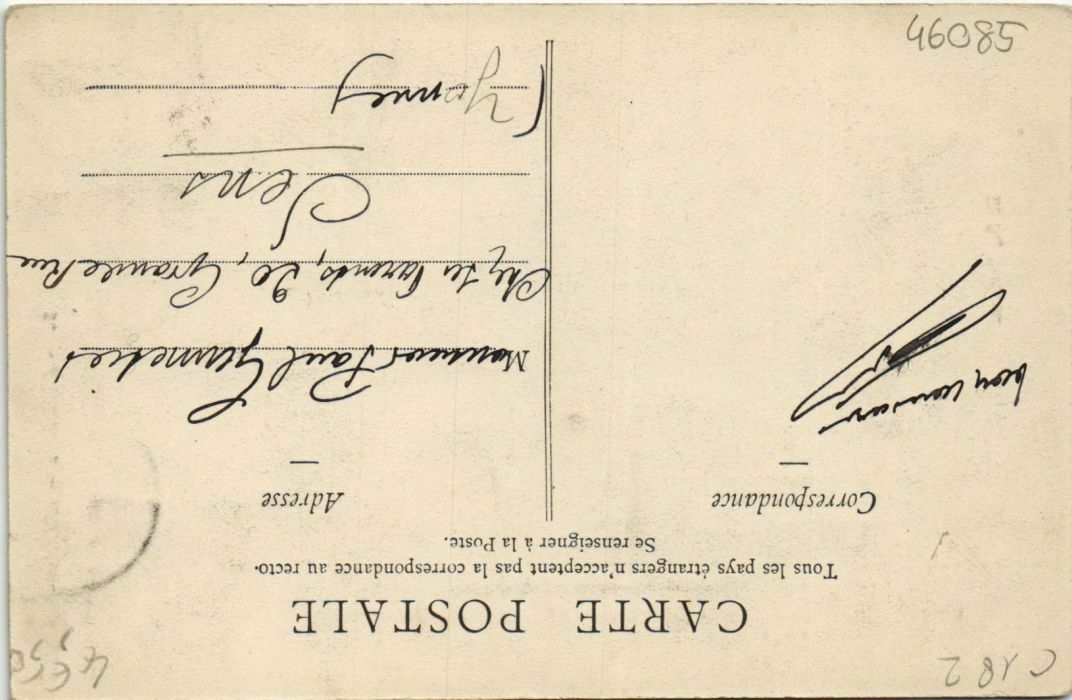 C182
4€50
CARTE POSTALE
Tous les pays étrangers n'acceptent pas la correspondance au recto.
Se renseigner à la Poste.
Correspondance
Adresse
Monsieur Paul
Chez ses Parents, 20, Grande Rue
Sens
(Yonne)
46085